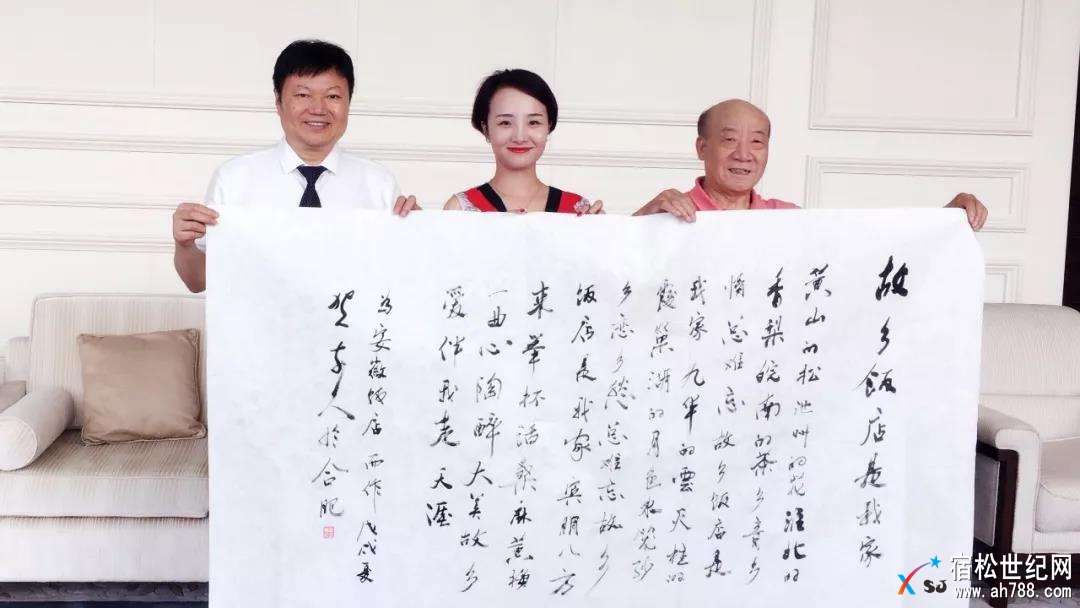 故乡饭店是我家
黄山的松池州的花淮北的
香梨皖南的茶乡音乡
情总难忘故乡饭店是
我家九华的雲天柱的
霞巢湖的月色水笼纱
乡恋乡愁总难忘故乡
饭店是我家宾朋八方
来举杯话桑麻黄梅
一曲心陶醉大美故乡
爱伴我走天涯
为安徽饭店而作戊戌夏
贺东久於合肥
SJ 宿松世纪网
www.ah788.com